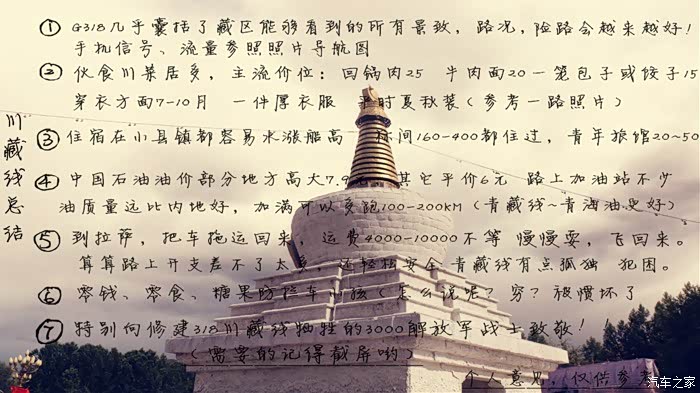 川藏线总结
① G318几乎囊括了藏区能够看到的所有景致，路况，险路会越来越好！
手机信号、流量参照照片导航图
② 伙食川菜居多，主流价位：回锅肉25 牛肉面20 一笼包子或饺子15
穿衣方面7-10月 一件厚衣服 平时夏秋装（参考一路照片）
③ 住宿在小县镇都容易水涨船高 标间160-400都住过，青年旅馆20~50
④ 中国石油油价部分地方高大7.9 其它平价6元 路上加油站不少
油质量远比内地好，加满可以多跑100-200KM（青藏线~青海油更好）
⑤ 到拉萨，把车拖运回来，运费4000-10000不等 慢慢耍，飞回来。
算算路上开支差不了太多，还轻松安全 青藏线有点孤独 犯困。
⑥ 零钱、零食、糖果防拦车小孩（怎么说呢？穷？被惯坏了
⑦ 特别向修建318川藏线牺牲的3000解放军战士致敬！！
（需要的记得截屏哟）
（个人意见，仅供参考
汽车之家